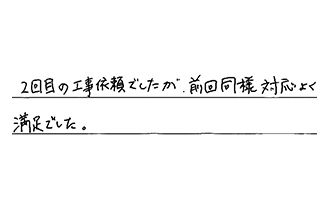 2回目の工事依頼でしたが、前回同様対応よく
満足でした。